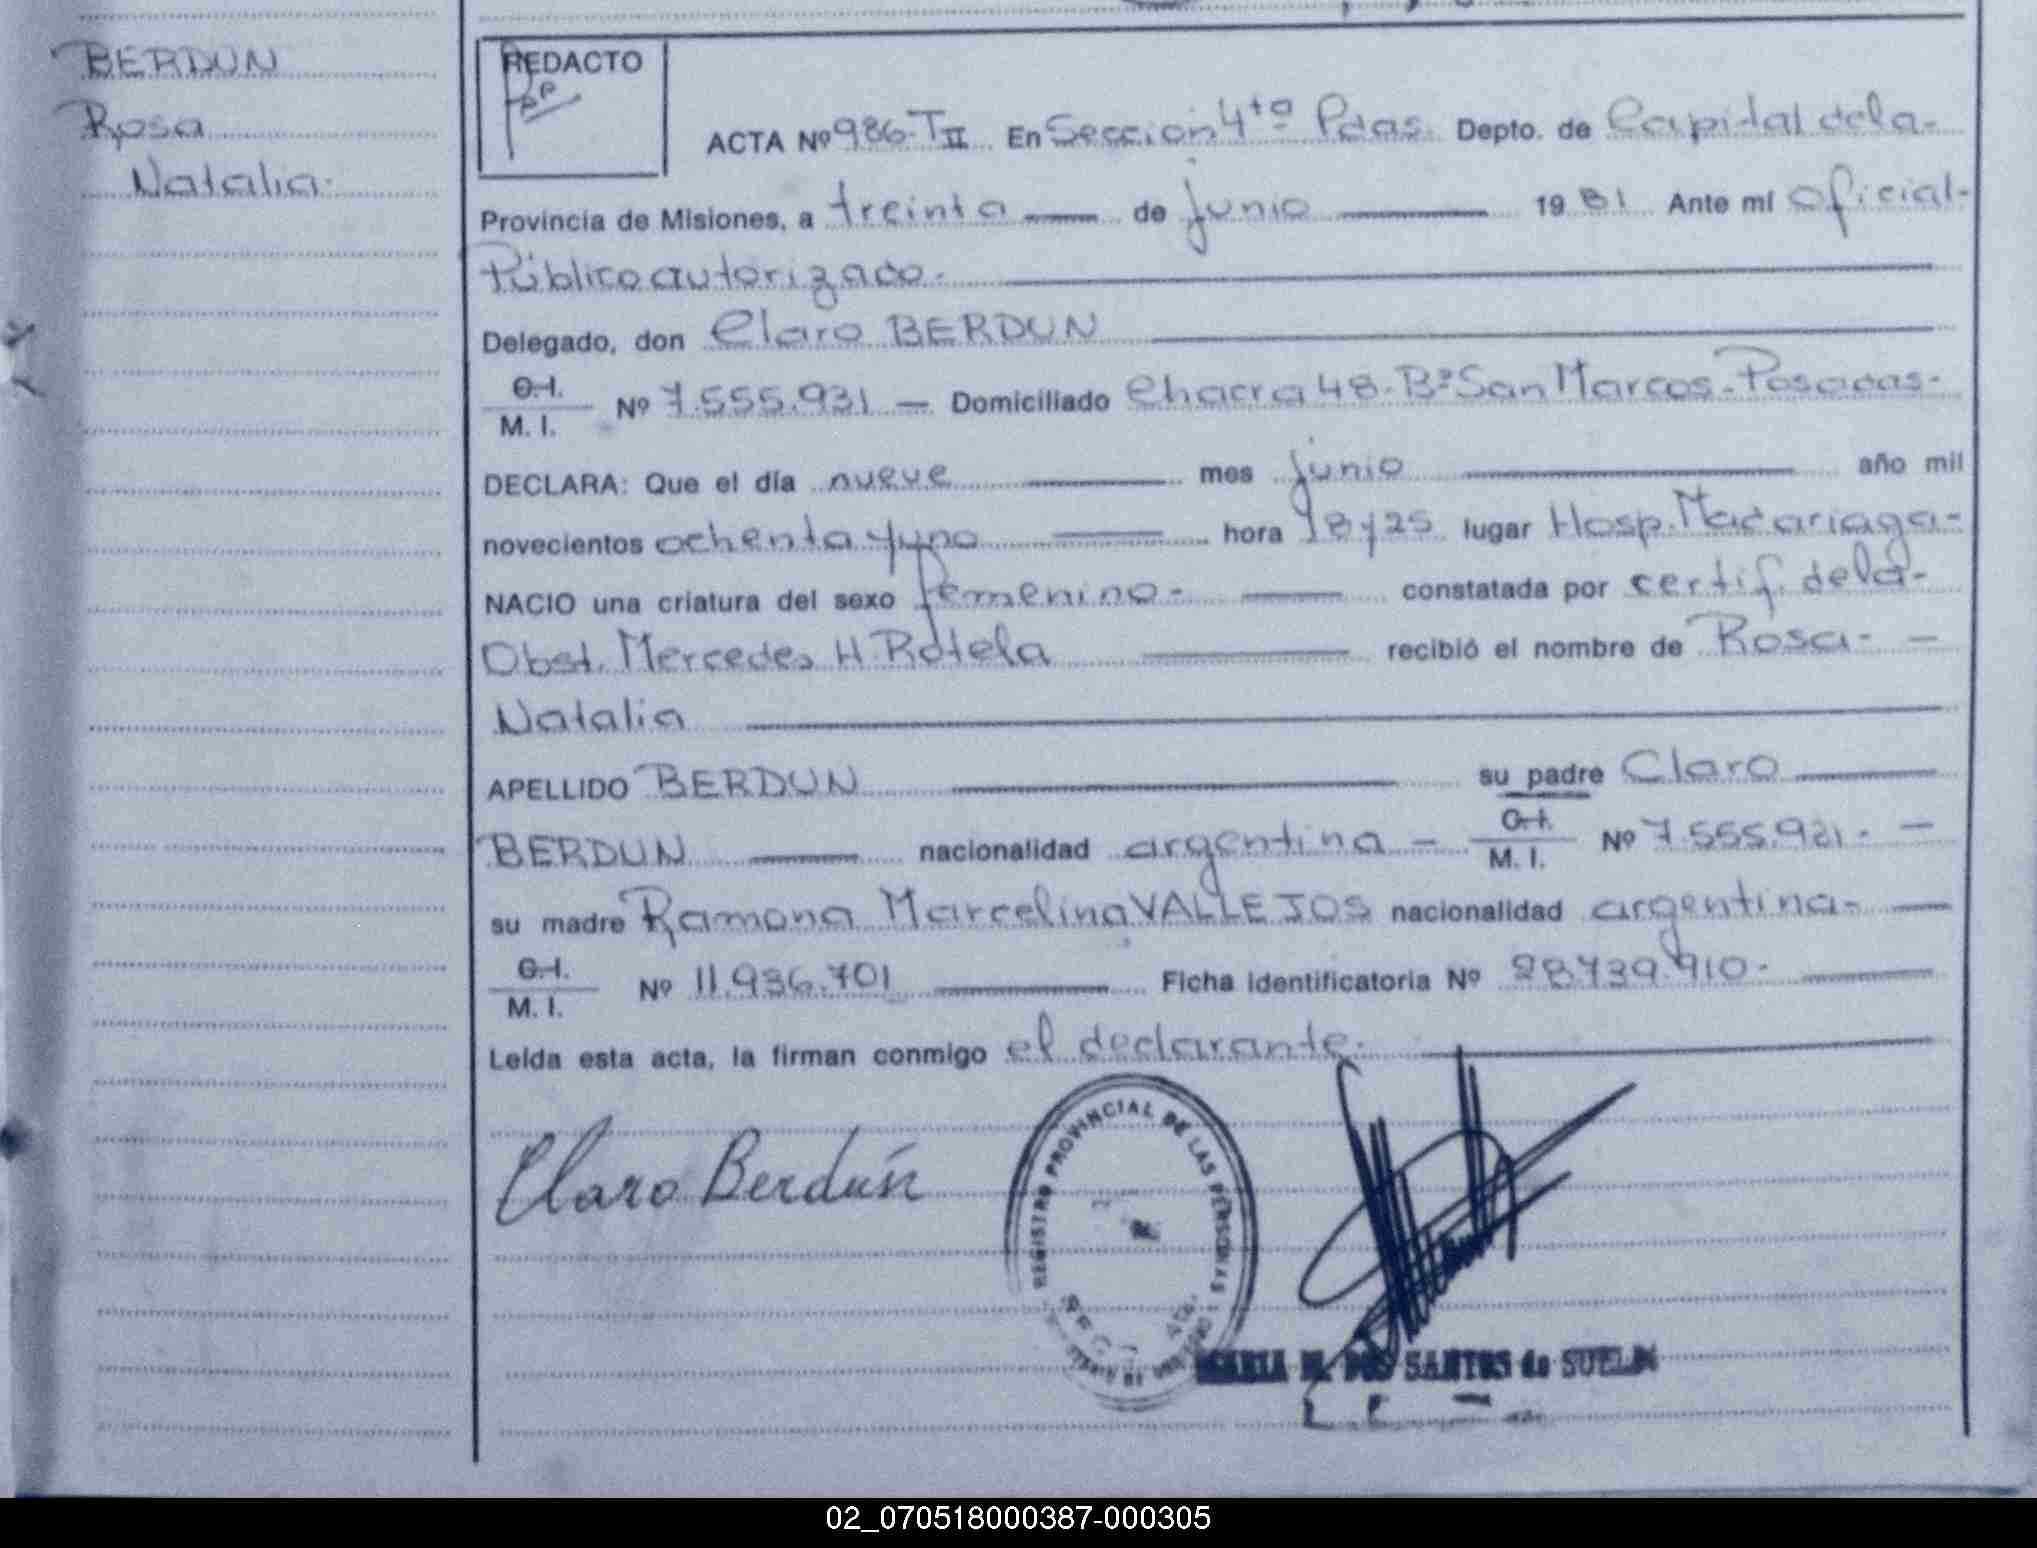 BERDUN
Rosa
Natalia.
REDACTO
ACTA Nº 986-TII En Seccion 4ta Pdas. Depto. de Capital de la-
Provincia de Misiones, a treinta de junio 1981 Ante mí oficial-
Público autorizado.-
Delegado, don Claro BERDUN
C.I.
M. I. Nº 7.555.931 — Domiciliado Chacra 48-Bº San Marcos-Posadas-
DECLARA: Que el día nueve mes junio año mil
novecientos ochenta y uno hora 18 y 25 lugar Hosp. Madariaga-
NACIO una criatura del sexo femenino- constatada por certif. de la-
Obst. Mercedes H. Rotela recibió el nombre de Rosa- —
Natalia
APELLIDO BERDUN su padre Claro
BERDUN nacionalidad argentina — C.I.
M. I. Nº 7.555.931. —
su madre Ramona Marcelina VALLEJOS nacionalidad argentina-
C.I.
M. I. Nº 11.936.701 Ficha identificatoria Nº 28.739.910-
Leída esta acta, la firman conmigo el declarante.
Claro Berdún
REGISTRO PROVINCIAL DE LAS PERSONAS
MARIA M. DOS SANTOS de SUELIN
02_070518000387-000305